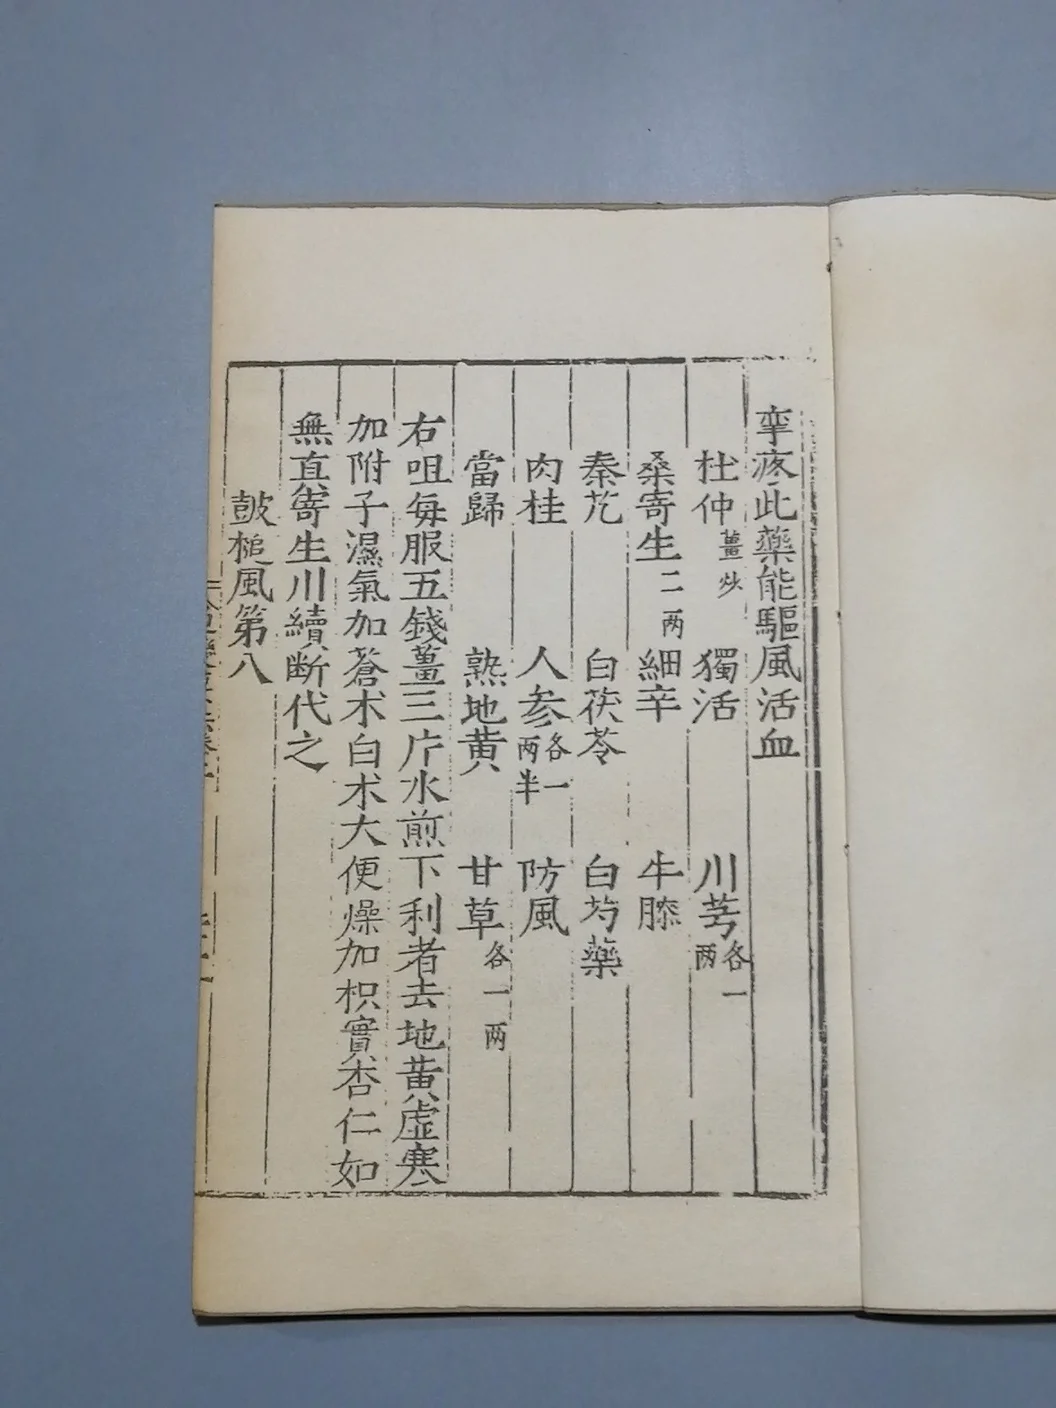 攣疼此藥能驅風活血
杜仲薑炒 獨活 川芎各一两
桑寄生二两 細辛 牛膝
秦艽 白茯苓 白芍藥
肉桂 人参各一两半 防風
當歸 熟地黄 甘草各一两
右咀每服五錢薑三片水煎下利者去地黄虚寒
加附子濕氣加蒼术白术大便燥加枳實杏仁如
無直寄生川續断代之
鼓槌風第八